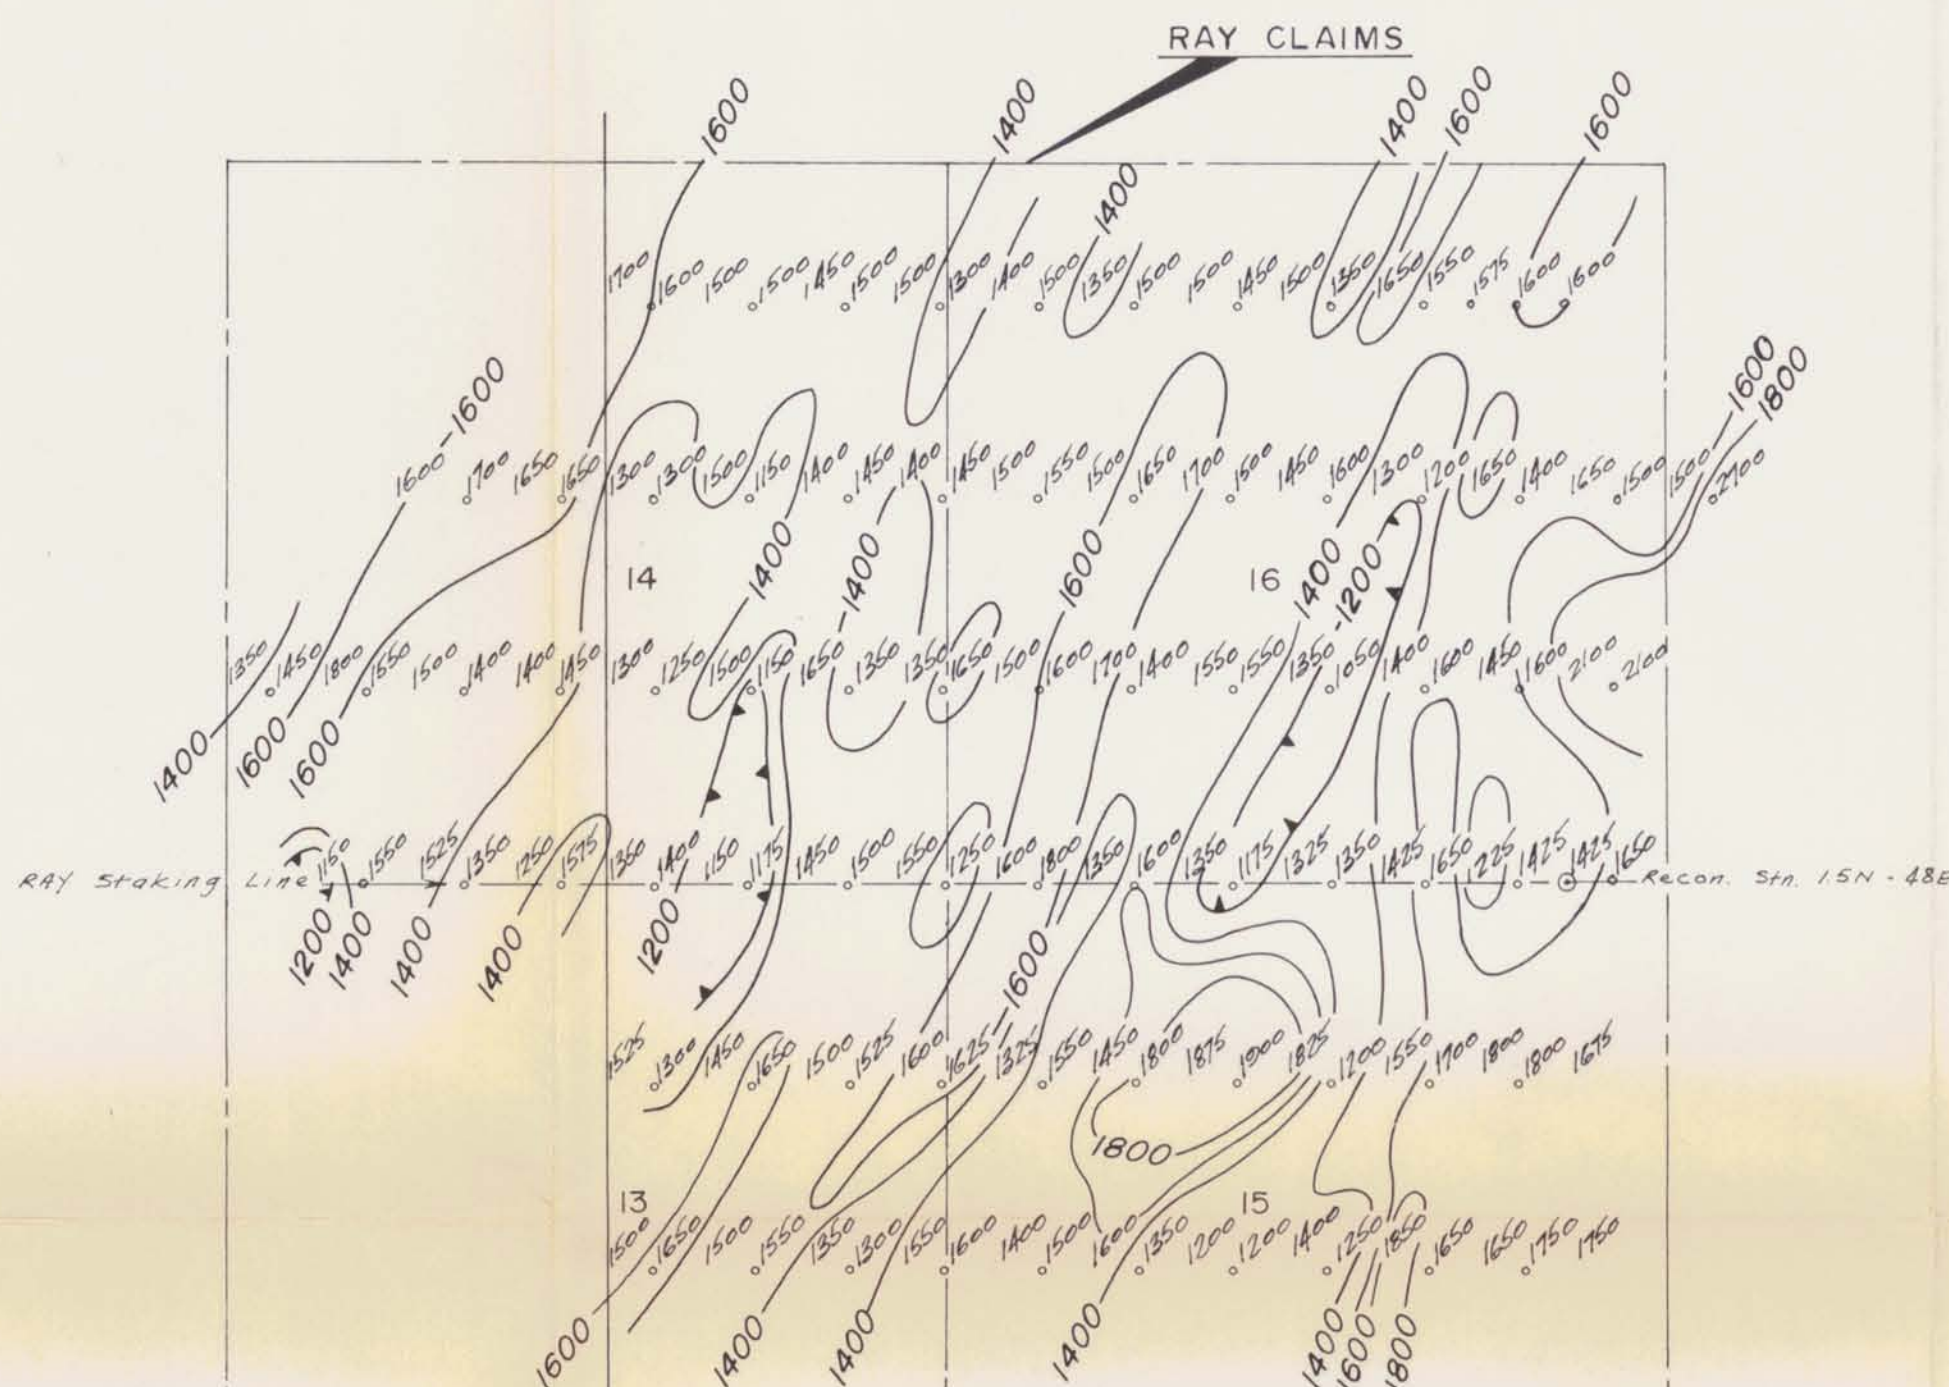 RAY CLAIMS
1600 1400 1400 1600 1600
1400
1700 1600 1500 1500 1450 1500 1500 1300 1400 1500 1350 1500 1500 1450 1500 1350 1650 1550 1575 1600 1600
1600 1800
1600 - 1600
1700 1650 1650 1300 1300 1500 1150 1400 1450 1400 1450 1500 1550 1500 1650 1700 1500 1450 1600 1300 1200 1650 1400 1650 1500 1500 2700
14 1400 1400 1600 16 1400 1200
1350 1450 1800 1550 1500 1400 1400 1450 1300 1250 1500 1150 1650 1350 1350 1650 1500 1600 1700 1400 1550 1550 1350 1050 1400 1600 1450 1600 2100 2100
1400 1600 1600
RAY Staking Line 1150 1550 1525 1350 1250 1575 1350 1400 1150 1175 1450 1500 1550 1250 1600 1800 1350 1600 1350 1175 1325 1350 1425 1650 1225 1425 1425 1650 Recon. Stn. 1.5N - 48E
1200 1400 1400 1400 1200 1600
1525 1300 1450 1650 1500 1525 1600 1625 1325 1550 1450 1800 1875 1900 1825 1200 1550 1700 1800 1800 1675
1800
13 15
1500 1650 1500 1550 1350 1300 1550 1600 1400 1500 1600 1350 1200 1200 1400 1250 1850 1650 1650 1750 1750
1600 1400 1400 1400 1400 1600 1800